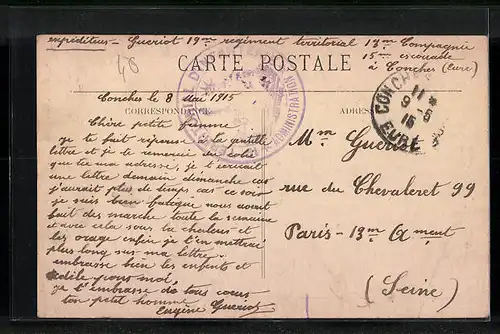 expéditeur - Gueriot 19me regiment territorial 13me Compagnie
15me escouade
à Conches (Eure)
48
CARTE POSTALE
CONCHES
11
9 - 5
15
EURE
ADMINISTRATION
Conches le 8 Mai 1915
CORRESPONDANCE
ADRES
Chère petite femme
je te fait réponse à ta gentille
lettre et je te remercie du colis
que tu m'a adressé, je t'écrirait
une lettre demain dimanche car
j'aurait plus de temps car ce soir
je suis bien fatigué nous avont
fait des marche toute la semaine
et avec cela sous la chaleur et
les orage enfin je t'en mettrai
plus long sur ma lettre.
embrasse bien les enfants et
Adèle pour moi,
je t'embrasse de tous cœur
ton petit homme
Eugène Gueriot
Mme Gueriot
rue du Chevaleret 99
Paris - 13me Arment
(Seine)